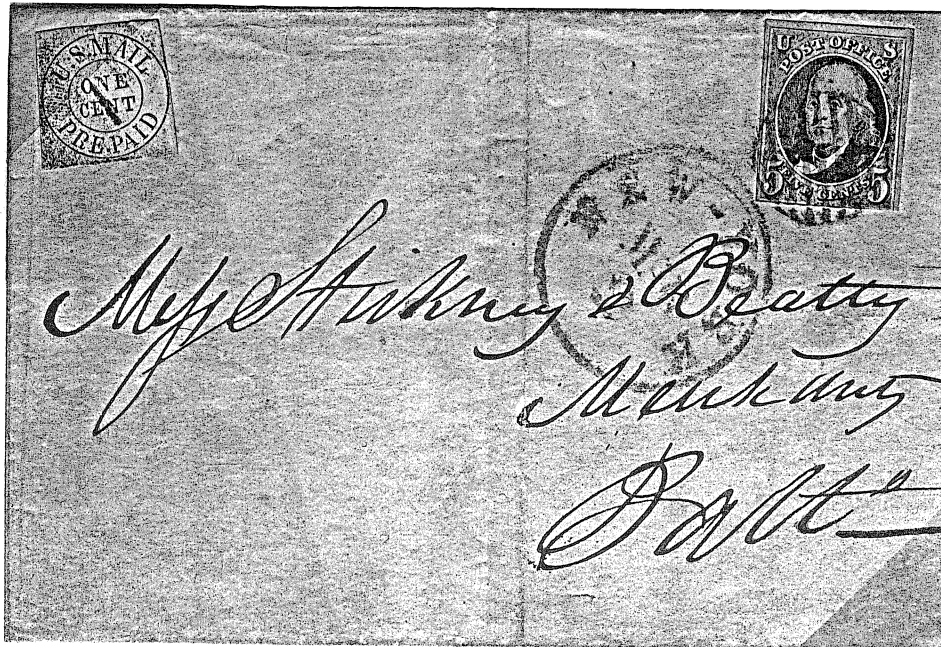 U.S. MAIL
ONE
CENT
PRE-PAID
U S
POST OFFICE
5 FIVE CENTS 5
NEW-YORK
Messrs Stickney & Beatty
Merchants
Balto